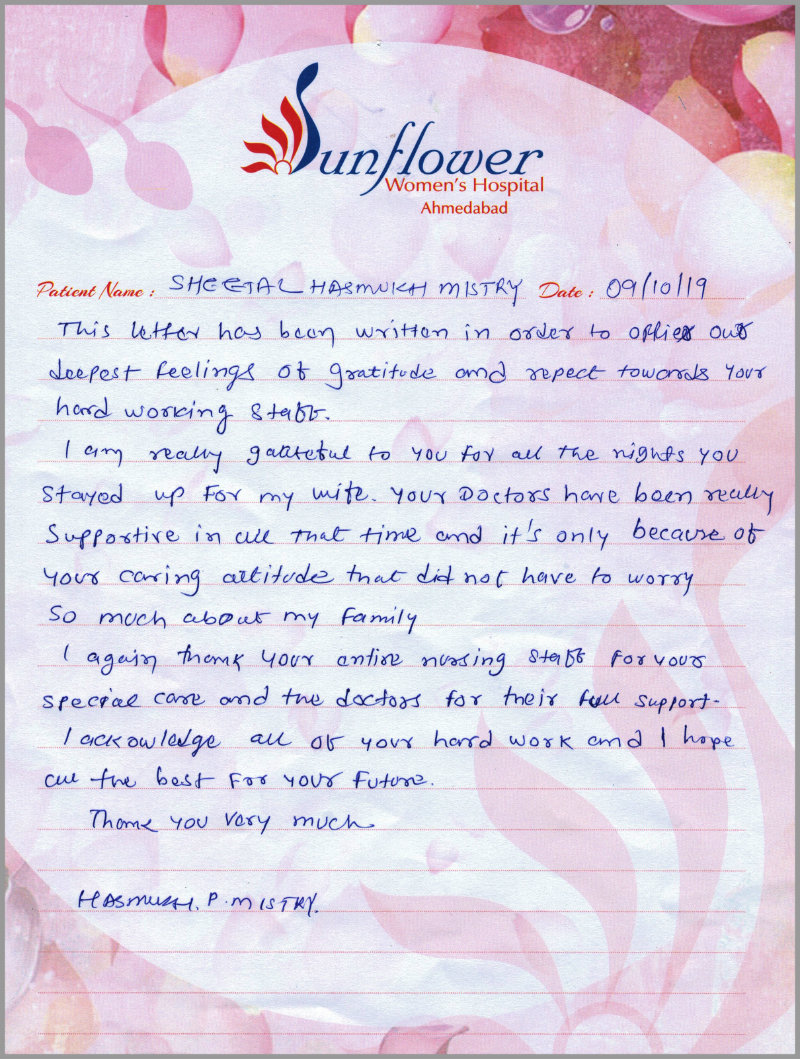 Sunflower
Women's Hospital
Ahmedabad
Patient Name : SHEETAL HASMUKH MISTRY Date : 09/10/19
This letter has been written in order to offer our
deepest feelings of gratitude and repect towards your
hard working staff.
I am really gateteful to you for all the nights you
stayed up for my wife. Your Doctors have been really
supportive in all that time and it's only because of
your caring attitude that did not have to worry
So much about my family
I again thank your entire nursing staff for your
special care and the doctors for their full support.
I ackowledge all of your hard work and I hope
all the best for your future.
Thank you very much
HASMUKH. P. MISTRY.